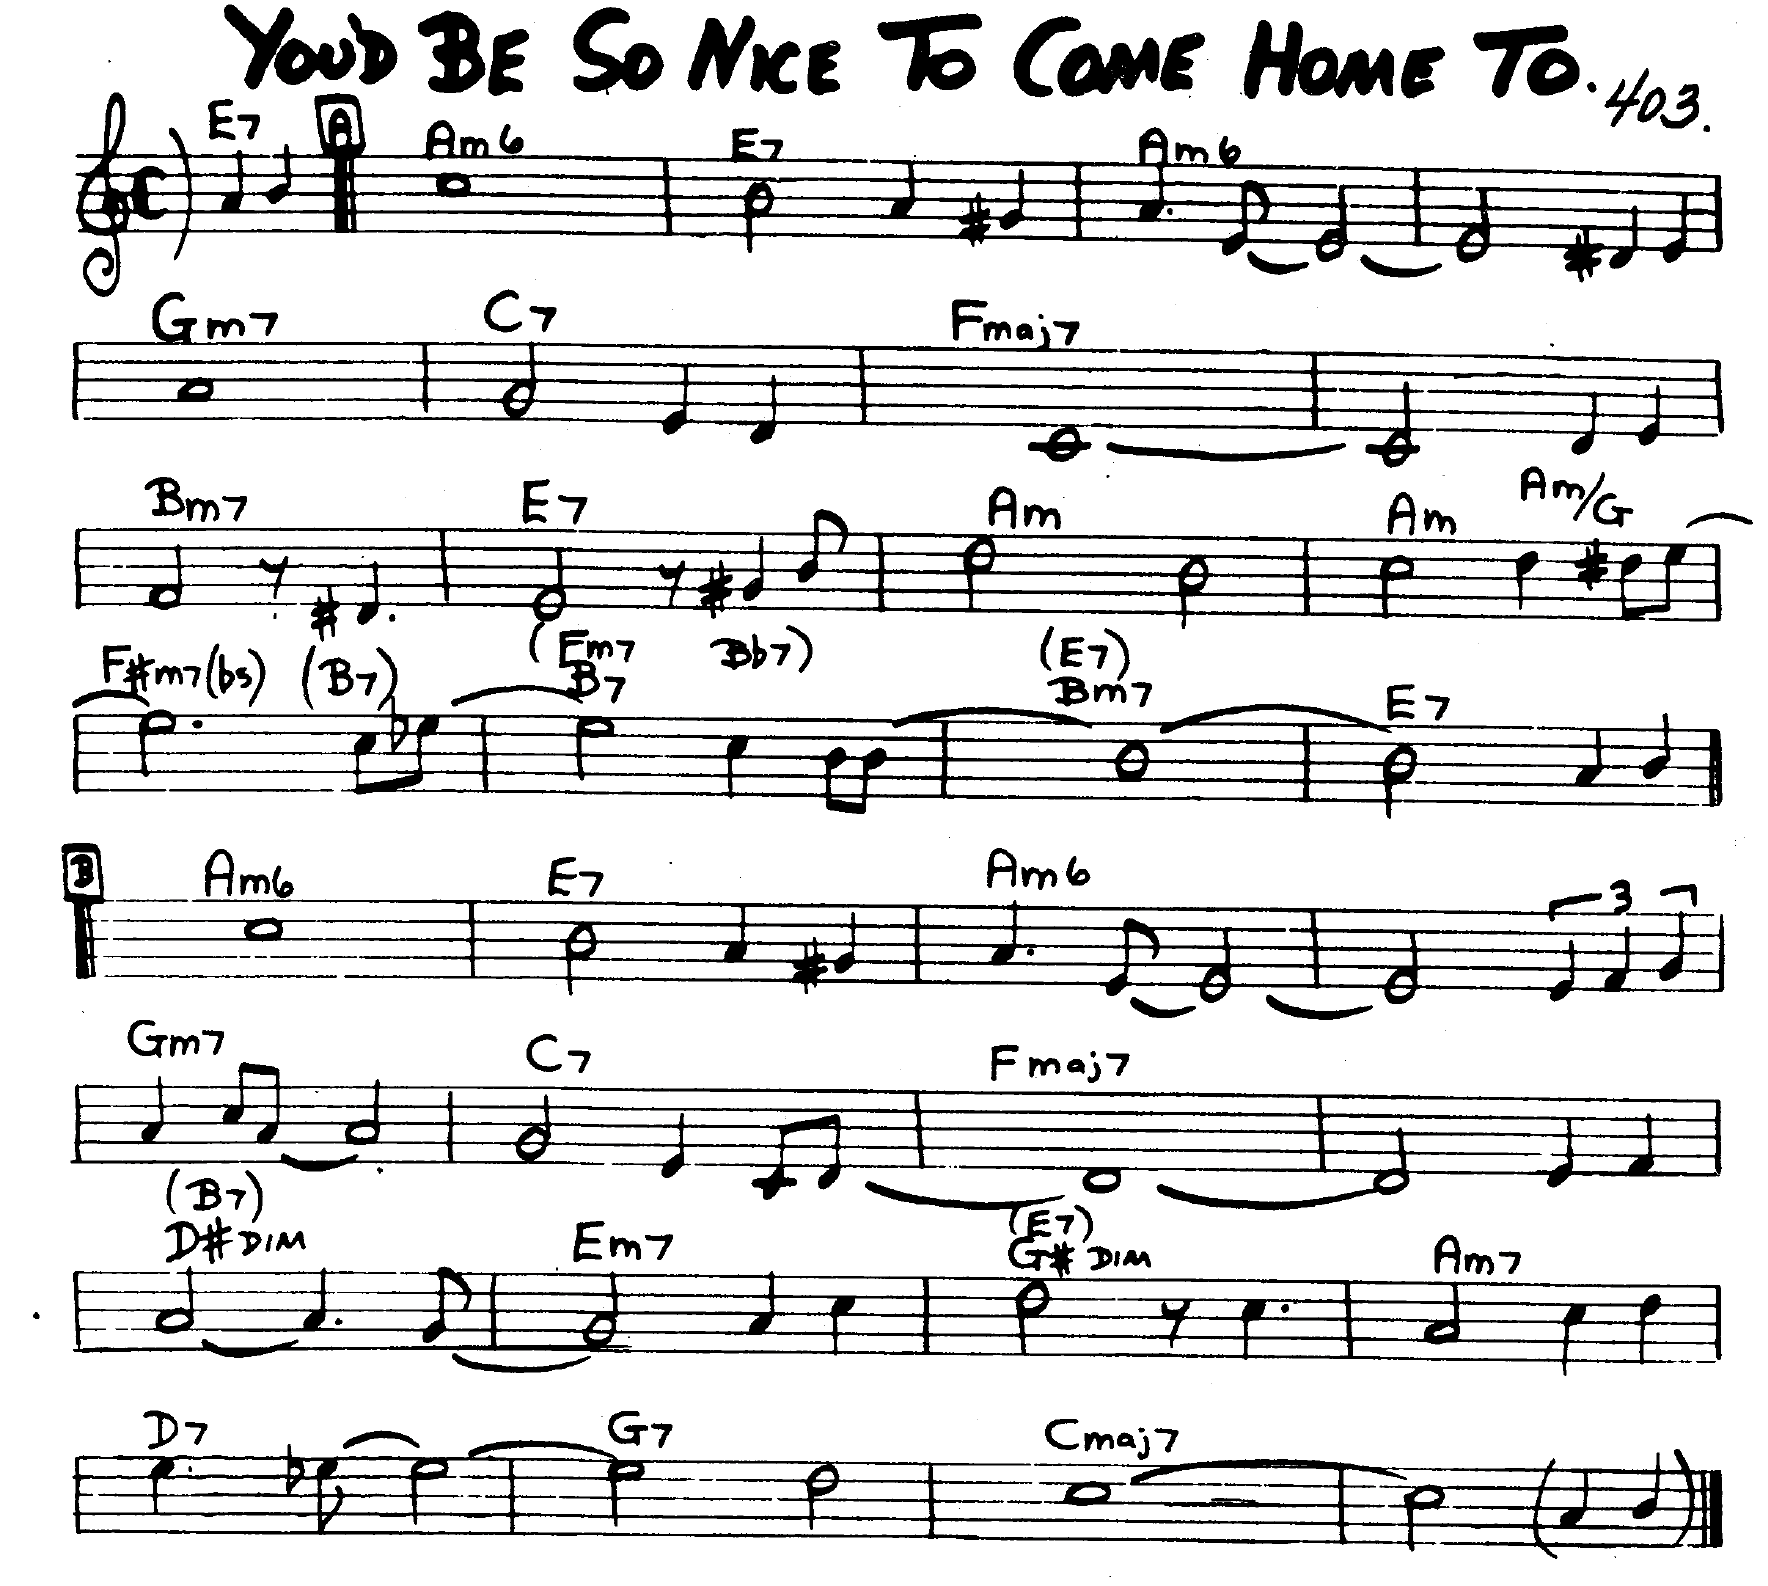 YOU'D BE SO NICE TO COME HOME TO.
403.
E7 A Am6 E7 Am6
Gm7 C7 Fmaj7
Bm7 E7 Am Am Am/G
F#m7(b5) (B7) (Fm7 Bb7) (E7)
B7 Bm7 E7
B Am6 E7 Am6 3
Gm7 C7 Fmaj7
(B7) (E7)
D# DIM Em7 G# DIM Am7
D7 G7 Cmaj7